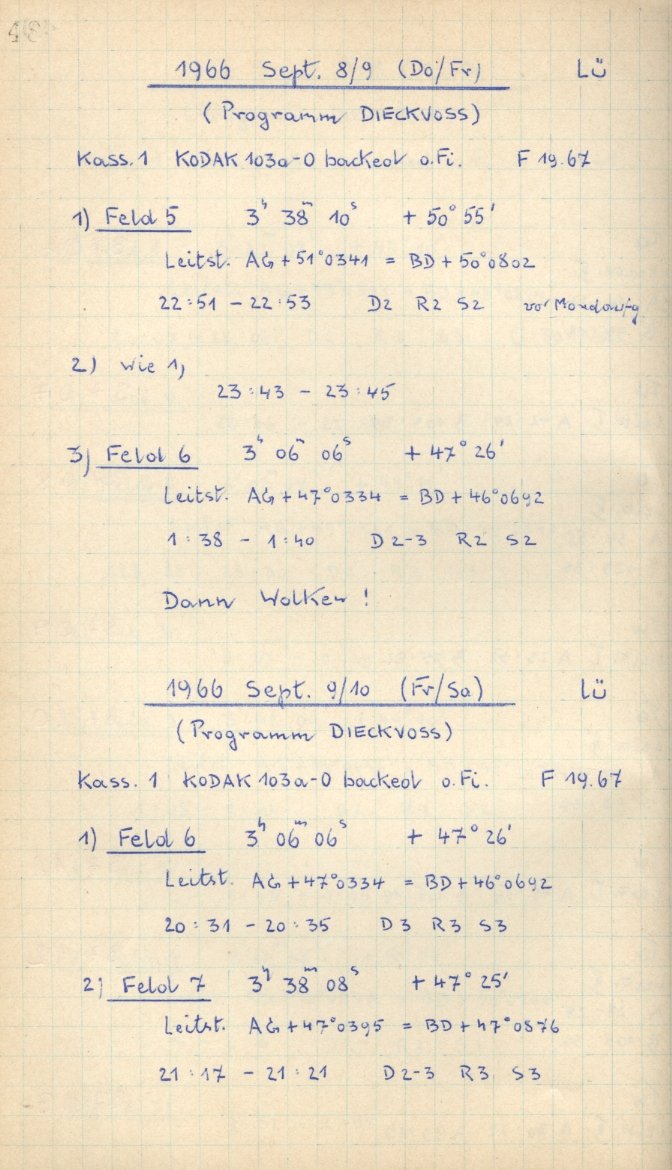 1966 Sept. 8/9 (Do/Fr) Lü
(Programm DIECKVOSS)
Kass. 1 KODAK 103a-O backed o. Fi. F 19.67
1) Feld 5 3ʰ 38ᵐ 10ˢ + 50° 55'
Leitst. AG + 51°0341 = BD + 50°0802
22:51 - 22:53 D2 R2 S2 vor Mondaufg.
2) Wie 1)
23:43 - 23:45
3) Feld 6 3ʰ 06ᵐ 06ˢ + 47° 26'
Leitst. AG + 47°0334 = BD + 46°0692
1:38 - 1:40 D2-3 R2 S2
Dann Wolken!
1966 Sept. 9/10 (Fr/Sa) Lü
(Programm DIECKVOSS)
Kass. 1 KODAK 103a-O backed o. Fi. F 19.67
1) Feld 6 3ʰ 06ᵐ 06ˢ + 47° 26'
Leitst. AG + 47°0334 = BD + 46°0692
20:31 - 20:35 D3 R3 S3
2) Feld 7 3ʰ 38ᵐ 08ˢ + 47° 25'
Leitst. AG + 47°0395 = BD + 47°0876
21:17 - 21:21 D2-3 R3 S3